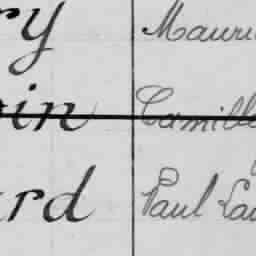 ry Mauri
oin Camille
ard Paul Lau